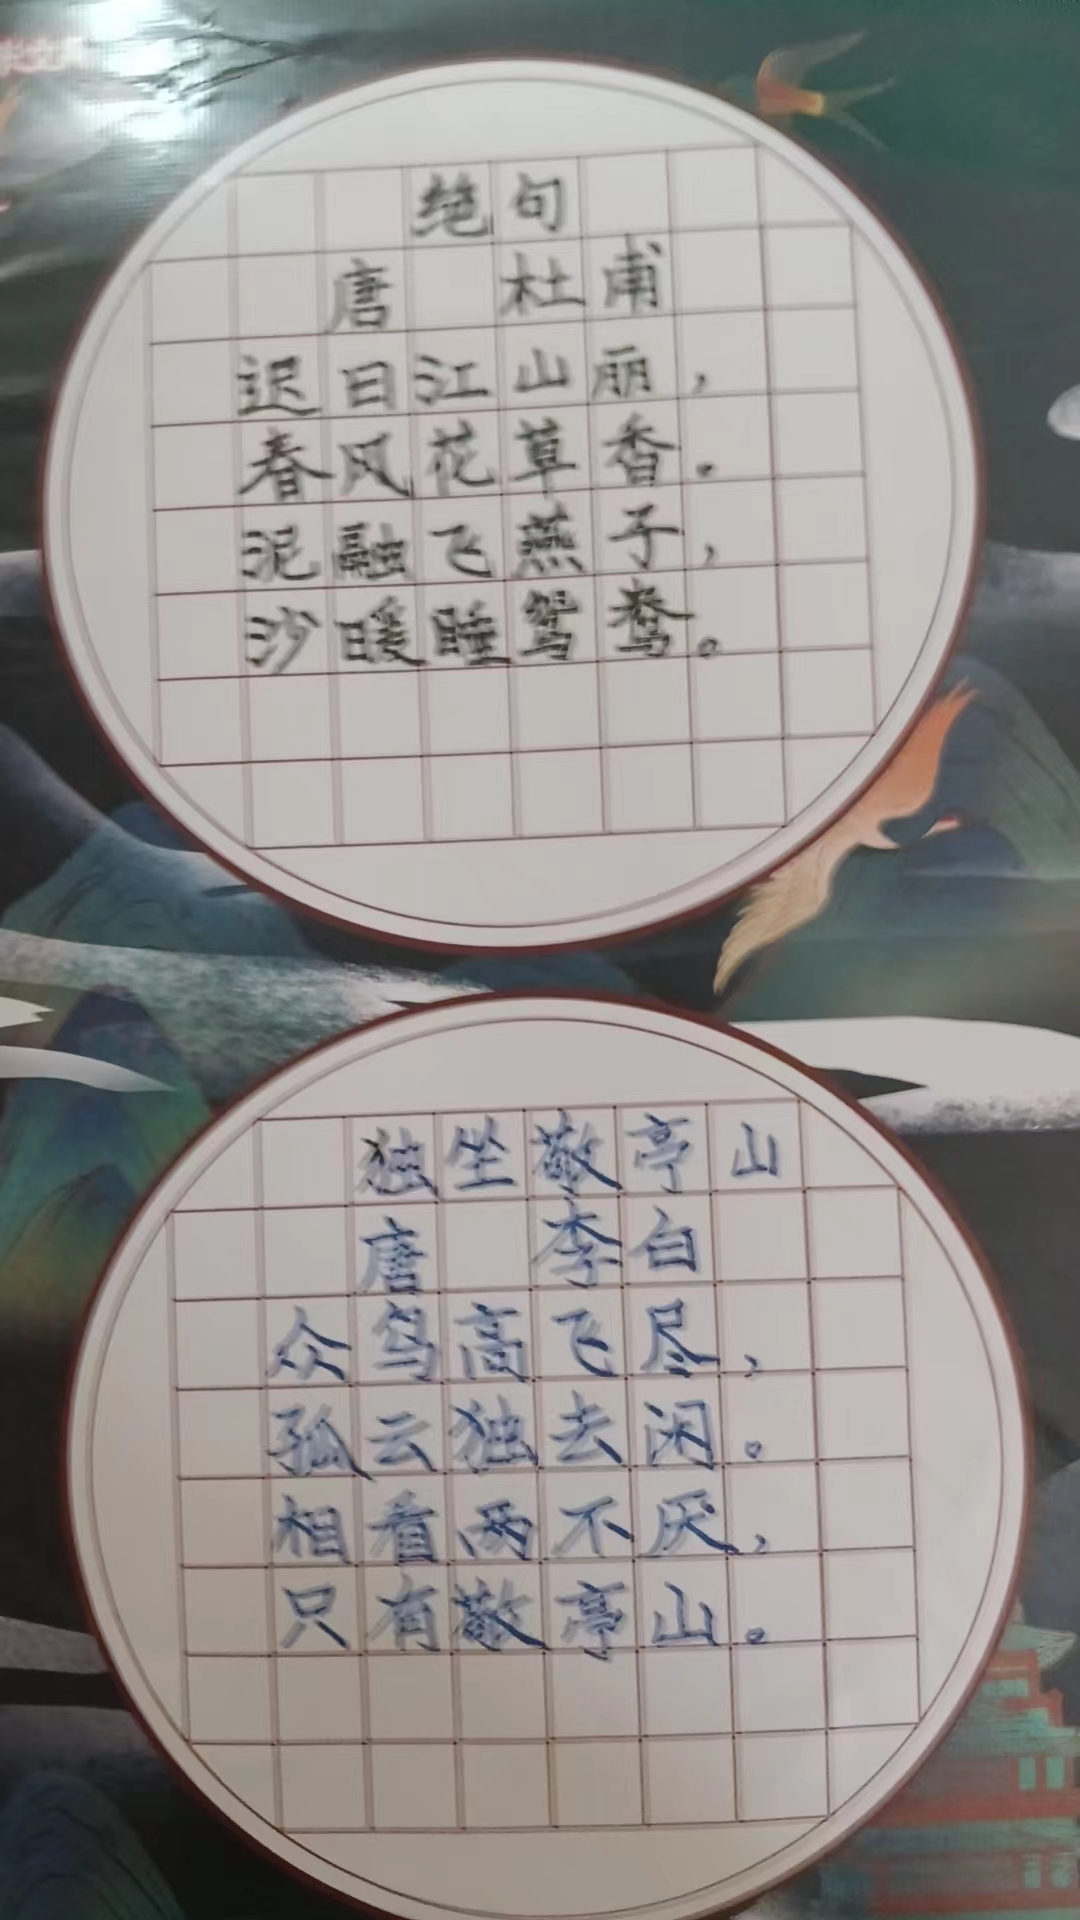 绝句
唐 杜甫
迟日江山丽，
春风花草香。
泥融飞燕子，
沙暖睡鸳鸯。
独坐敬亭山
唐 李白
众鸟高飞尽，
孤云独去闲。
相看两不厌，
只有敬亭山。